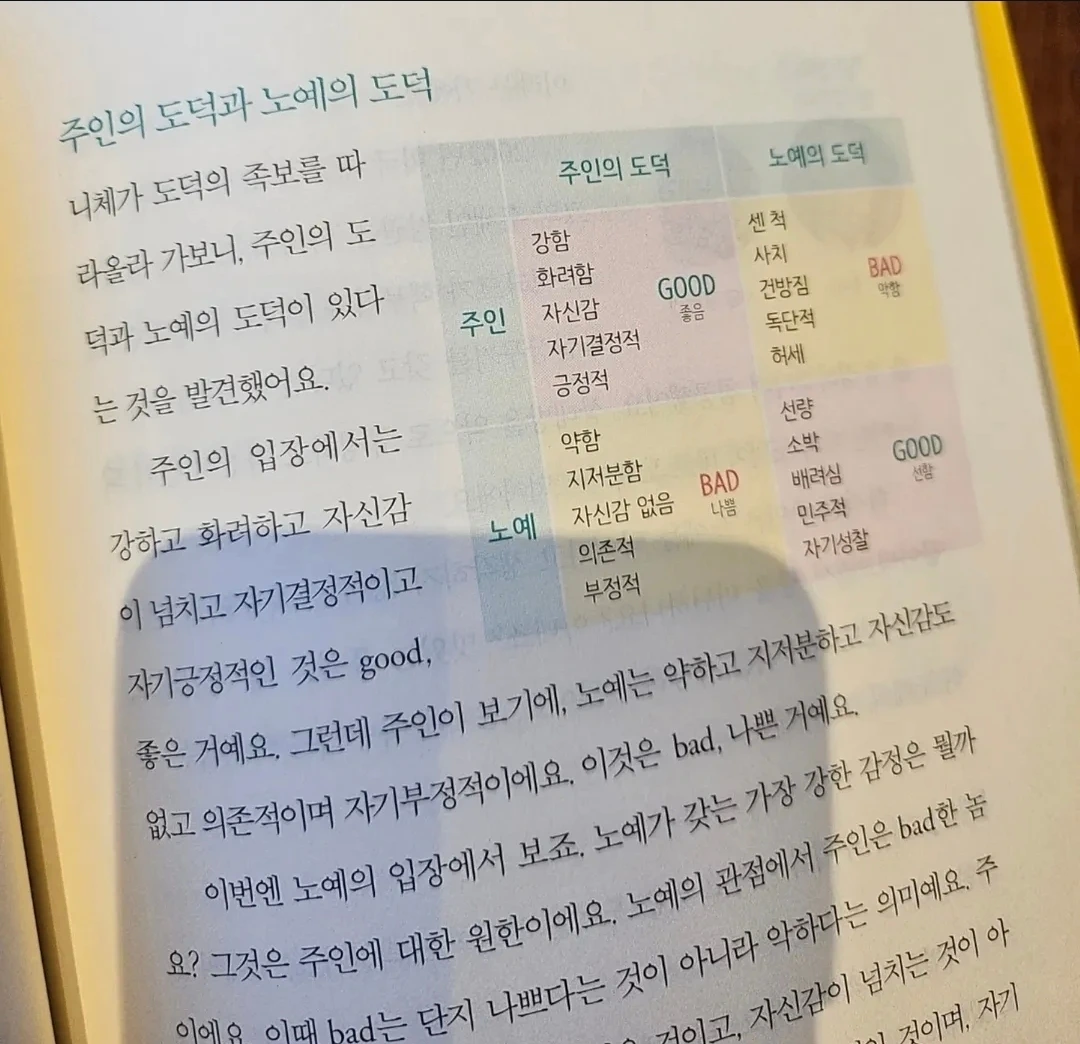 주인의 도덕과 노예의 도덕
니체가 도덕의 족보를 따
라올라 가보니, 주인의 도
덕과 노예의 도덕이 있다
는 것을 발견했어요.
주인의 입장에서는
강하고 화려하고 자신감
이 넘치고 자기결정적이고
자기긍정적인 것은 good,
좋은 거예요. 그런데 주인이 보기에, 노예는 약하고 지저분하고 자신감도
없고 의존적이며 자기부정적이에요. 이것은 bad, 나쁜 거예요.
이번엔 노예의 입장에서 보죠. 노예가 갖는 가장 강한 감정은 뭘까
요? 그것은 주인에 대한 원한이에요. 노예의 관점에서 주인은 bad한 놈
이에요. 이때 bad는 단지 나쁘다는 것이 아니라 악하다는 의미예요. 주
것이고, 자신감이 넘치는 것이 아
것이며, 자기
주인의 도덕
노예의 도덕
주인
강함
화려함
자신감
자기결정적
긍정적
GOOD
좋음
센 척
사치
건방짐
독단적
허세
BAD
악함
노예
약함
지저분함
자신감 없음
의존적
부정적
BAD
나쁨
선량
소박
배려심
민주적
자기성찰
GOOD
선함